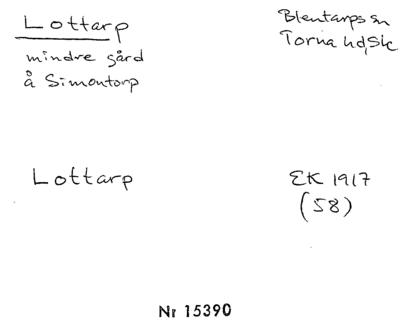 Lottarp
mindre gård
å Simontorp
Blentarps sn
Torna hd, Sk
Lottarp
EK 1917
(58)
Nr 15390